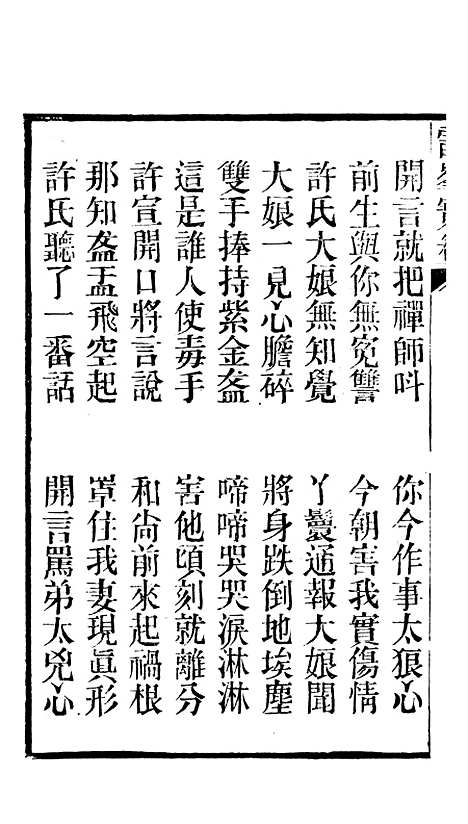 開言就把禪師呌　你今作事太狠心
前生與你無寃讐　今朝害我實傷情
許氏大娘無知覺　丫鬟通報大娘聞
大娘一見心膽碎　將身跌倒地埃塵
雙手捧持紫金盔　啼啼哭哭淚淋淋
這是誰人使毒手　害他頃刻就離分
許宣開口將言說　和尙前來起禍根
那知盔盂飛空起　罩住我妻現眞形
許氏聽了一番話　開言罵弟太兇心